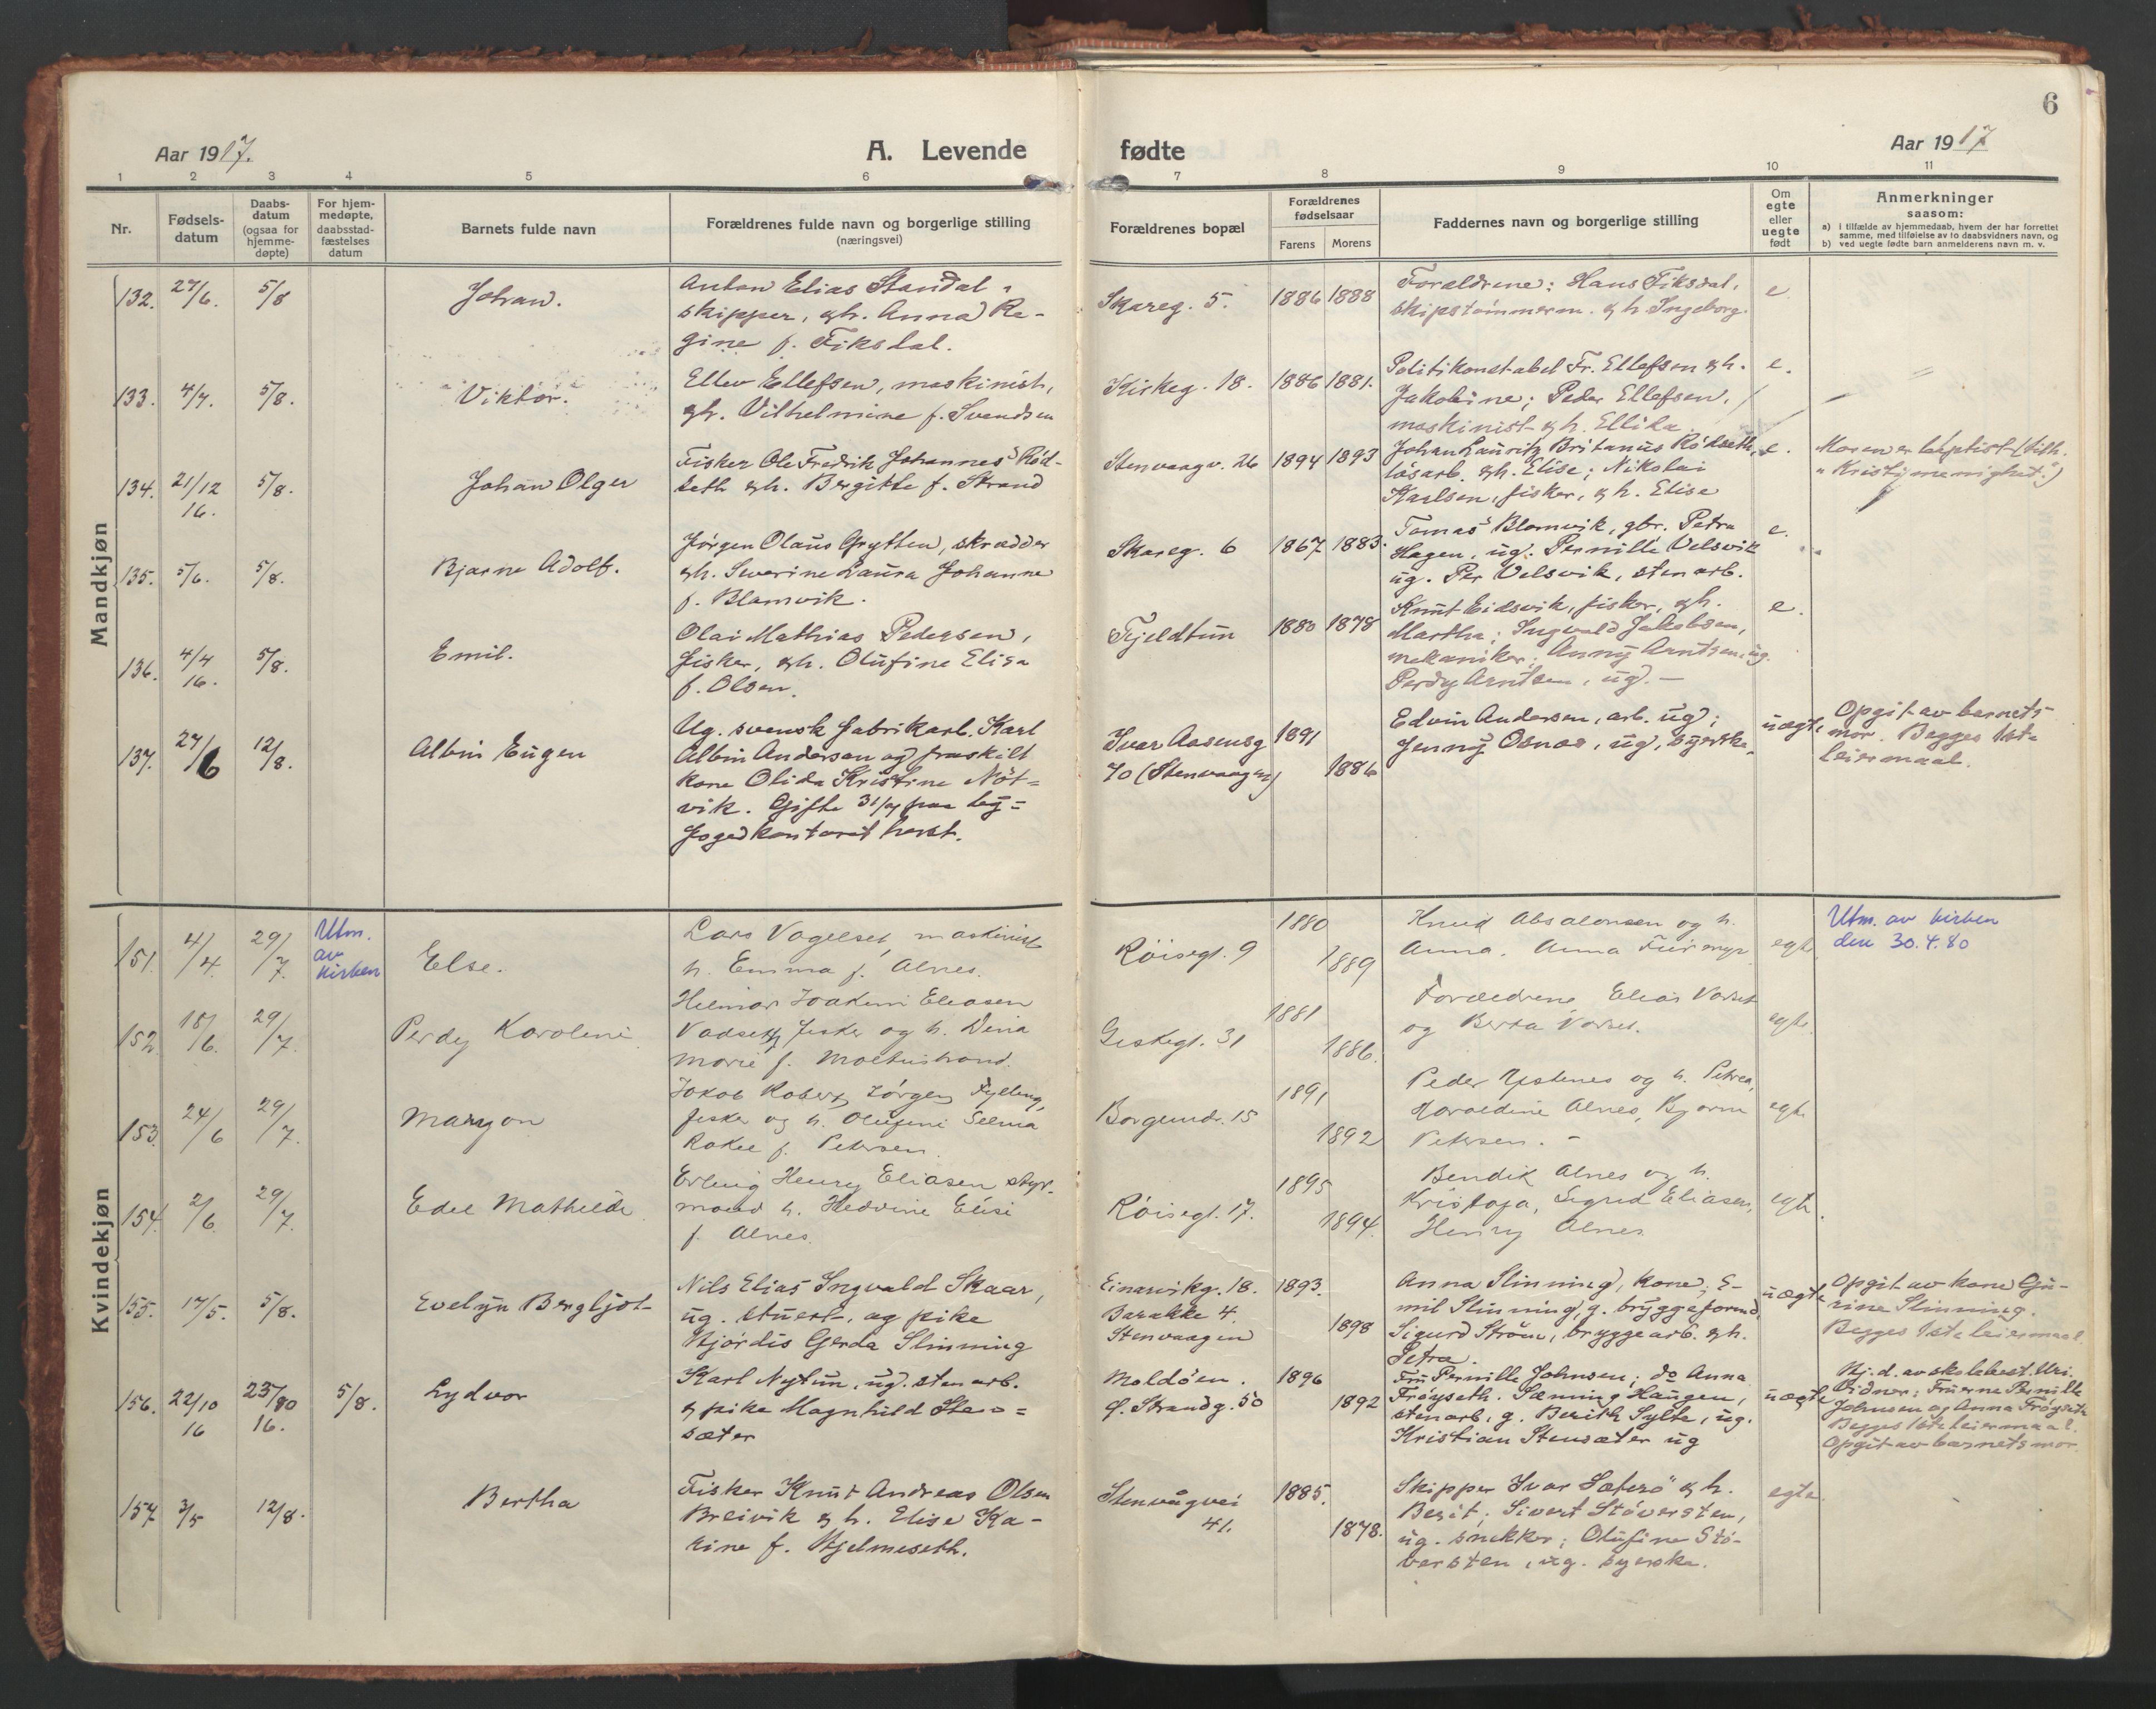 6
Aar 1917.
A. Levende
fødte
Aar 1917
1 2 3 4 5 6 7 8 9 10 11
Nr.
Fødsels-
datum
Daabs-
datum
(ogsaa for
hjemme-
døpte)
For hjem-
medøpte,
daabsstad-
fæstelses
datum
Barnets fulde navn
Forældrenes fulde navn og borgerlige stilling
(næringsvei)
Forældrenes bopæl
Forældrenes
fødselsaar
Farens Morens
Faddernes navn og borgerlige stilling
Om
egte
eller
uegte
født
Anmerkninger
saasom:
a) i tilfælde av hjemmedaab, hvem der har forrettet
samme, med tilføielse av to daabsvidners navn, og
b) ved uegte fødte barn anmelderens navn m. v.
Mandkjøn
132. 27/6. 5/8 Johan.
Anton Elias Standal,
skipper, & h. Anna Re-
gine f. Fiksdal.
Skareg. 5. 1886 1888
Forældrene: Hans Fiksdal,
skipstømmerm. & h. Ingeborg.
e
133. 4/7. 5/8. Viktor.
Ellev Ellefsen, maskinist,
& h. Vilhelmine f. Svendsen
Kirkeg. 18. 1886 1881.
Politikonstabel Fr. Ellefsen & h.
Jakobine; Peder Ellefsen,
maskinist & h. Ellida
e.
134. 21/12 16. 5/8. Johan Olger
Fisker Ole Fredrik Johannes Rød-
seth & h. Bergitte f. Strand
Stenvaagv. 26 1894 1893
Johan Lauritz Britanus Rødseth,
løsarb. & h. Elise; Nikolai
Karlsen, fisker, & h. Elise
e.
Moren er baptist (tilh.
"Kristi menighet".)
135. 5/6. 5/8. Bjarne Adolf.
Jørgen Olaus Grytten, skrædder
& h. Severine Laura Johanne
f. Blamvik.
Skareg. 6 1867 1883.
Tomas Blamvik, gbr. Petra
Hagen, ug. Pernille Velsvik
ug. Per Velsvik, stenarb.
e.
136. 4/4 16. 5/8. Emil.
Olai Mathias Pedersen,
fisker, & h. Olufine Elisa
f. Olsen.
Fjeldtun 1880 1878
Knut Eidsvik, fisker, & h.
Martha; Ingvald Jakobsen,
mekaniker; Anny Arntsen, ug.
Perdy Arntsen, ug. —
e.
137. 27/6 12/8. Albin Eugen
Ug. svensk fabrikarb. Karl
Albin Andersen og fraskilt
kone Olida Kristine Nöt=
vik. Gifte 31/7 paa by=
fogedkontoret herst.
Ivar Aasensg
70 (Stenvaagen) 1891 1886
Edvin Andersen, arb. ug;
Jenny Osnes, ug, syerske,
uegte
Opgit av barnets
mor. Begges 1ste
leiermaal.
Kvindekjøn
151. 4/4. 29/7. Utm.
av
kirken
Else.
Lars Vagelset, maskinist
h. Emma f. Alnes.
Röisegt. 9 1880 1889
Knud Absalonsen og h.
Anna. Anna
egte
Utm. av kirken
den 30.4.80
152. 18/6. 29/7. Perdy Karoline.
Hilmar Joakim Eliasen
Vadset, fisker og h. Dina
Marie f. Moltustrand.
Geskegt. 31 1881 1886.
Forældrene Elias Vadset
og Berta Vadset.
egte.
153. 24/6 29/7. Margon
Jakob Robert Jørgen Fylling,
fisker og h. Olufine Selma
Rakel f. Petersen.
Borgundv. 15 1891 1892
Peder Ystenes og h. Petrea,
Haraldine Alnes, Bjarne
Petersen. -
egte
154. 2/6. 29/7. Edel Mathilde
Erling Henry Eliasen styr-
mand h. Hedvine Elisi
f. Alnes.
Röisegt. 17. 1895 1894.
Bendik Alnes og h.
Kristofa, Sigrid Eliasen,
Henry Alnes
egte.
155. 17/5. 5/8. Evelyn Bergljot
Nils Elias Ingvald Skaar,
ug. stuert, og pike
Hjørdis Gerda Slinning
Einarvikg. 18.
Barakke 4.
Stenvaagen 1893. 1898
Anna Slinning, kone; E-
mil Slinning, g. bryggeformd,
Sigurd Strøm, bryggearb. & h.
Petra.
uegte
Opgit av kone Gu-
rine Slinning.
Begges 1ste leiermaal.
156. 22/10 16 23/10 16. 5/8. Lydvor
Karl Nytun, ug. stenarb.
& pike Magnhild Sten=
sæter
Moldöen.
Ø. Strandg. 50 1896 1892
Fru Pernille Johnsen; do Anna
Frøyseth. Hemming Haugen,
stenarb, g. Berith Sylte, ug.
Kristian Stensæter ug
uegte
Hj. d. av skolebest. Uri.
Vidner: Fruerne Pernille
Johnsen og Anna Frøyseth
Begges 1ste leiermaal.
Opgit av barnets mor.
157 3/5 12/8. Bertha
Fisker Knut Andreas Olsen
Breivik & h. Elise Ka-
rine f. Hjelmeseth.
Stenvågvei
41. 1885. 1878.
Skipper Ivar Sæterø & h.
Berit; Sivert Støversten,
ug. snekker; Olufine Stö-
versten, ug. syerske.
egte.